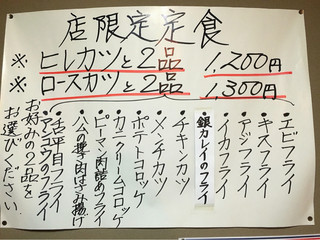 店限定定食
※ヒレカツと2品 1,200円
※ロースカツと2品 1,300円
・エビフライ
・キスフライ
・アジフライ
・イカフライ
銀カレイのフライ
・チキンカツ
・メンチカツ
・ポテトコロッケ
・カニクリームコロッケ
・ピーマン肉詰めフライ
・ハムの挽肉はさみ揚げ
・舌平目フライ
・アンコウのフライ
お好みの2品を
お選びください